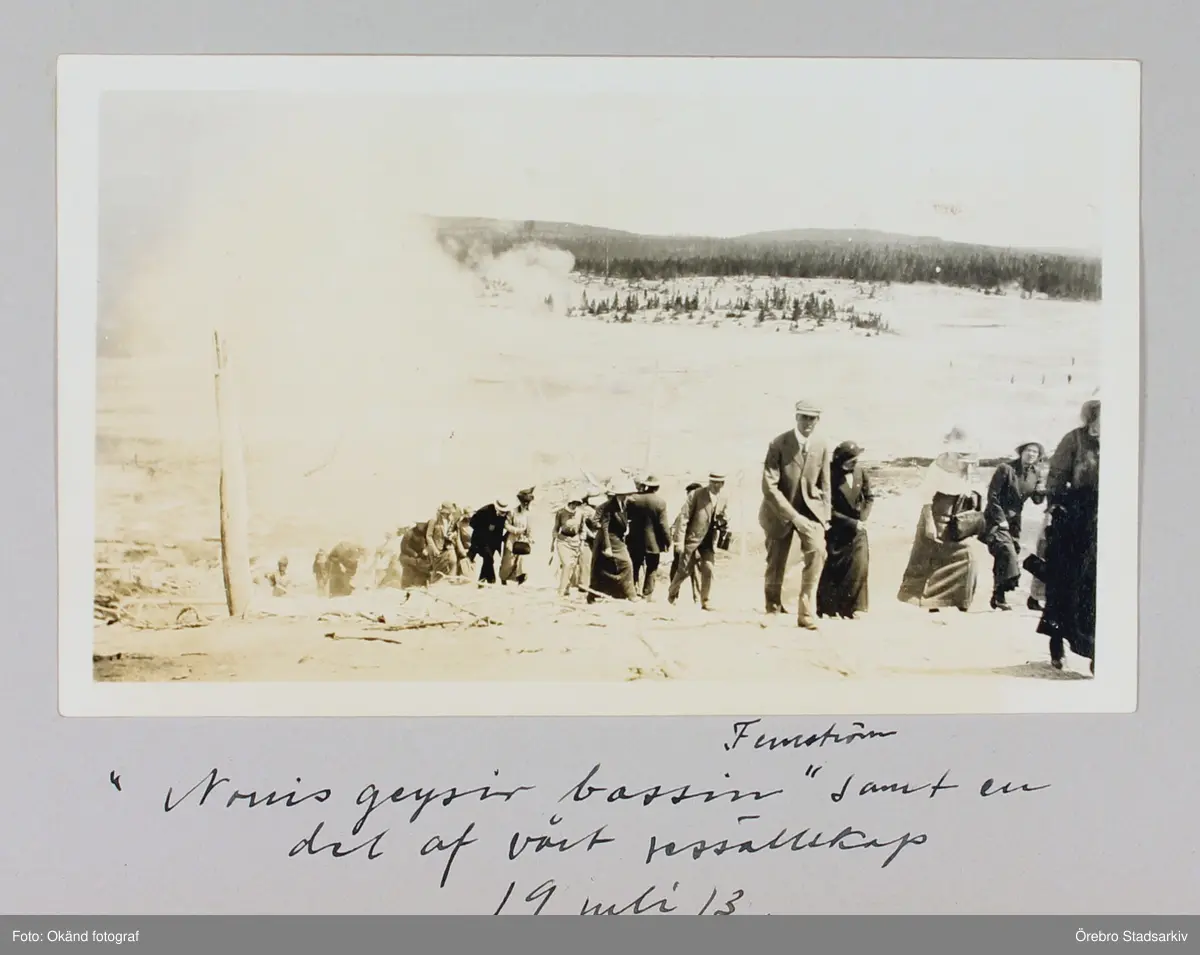 Fernström
"Norris geysir bassin" samt en
del af vårt ressällskap
19 juli 13.
Foto: Okänd fotograf
Örebro Stadsarkiv